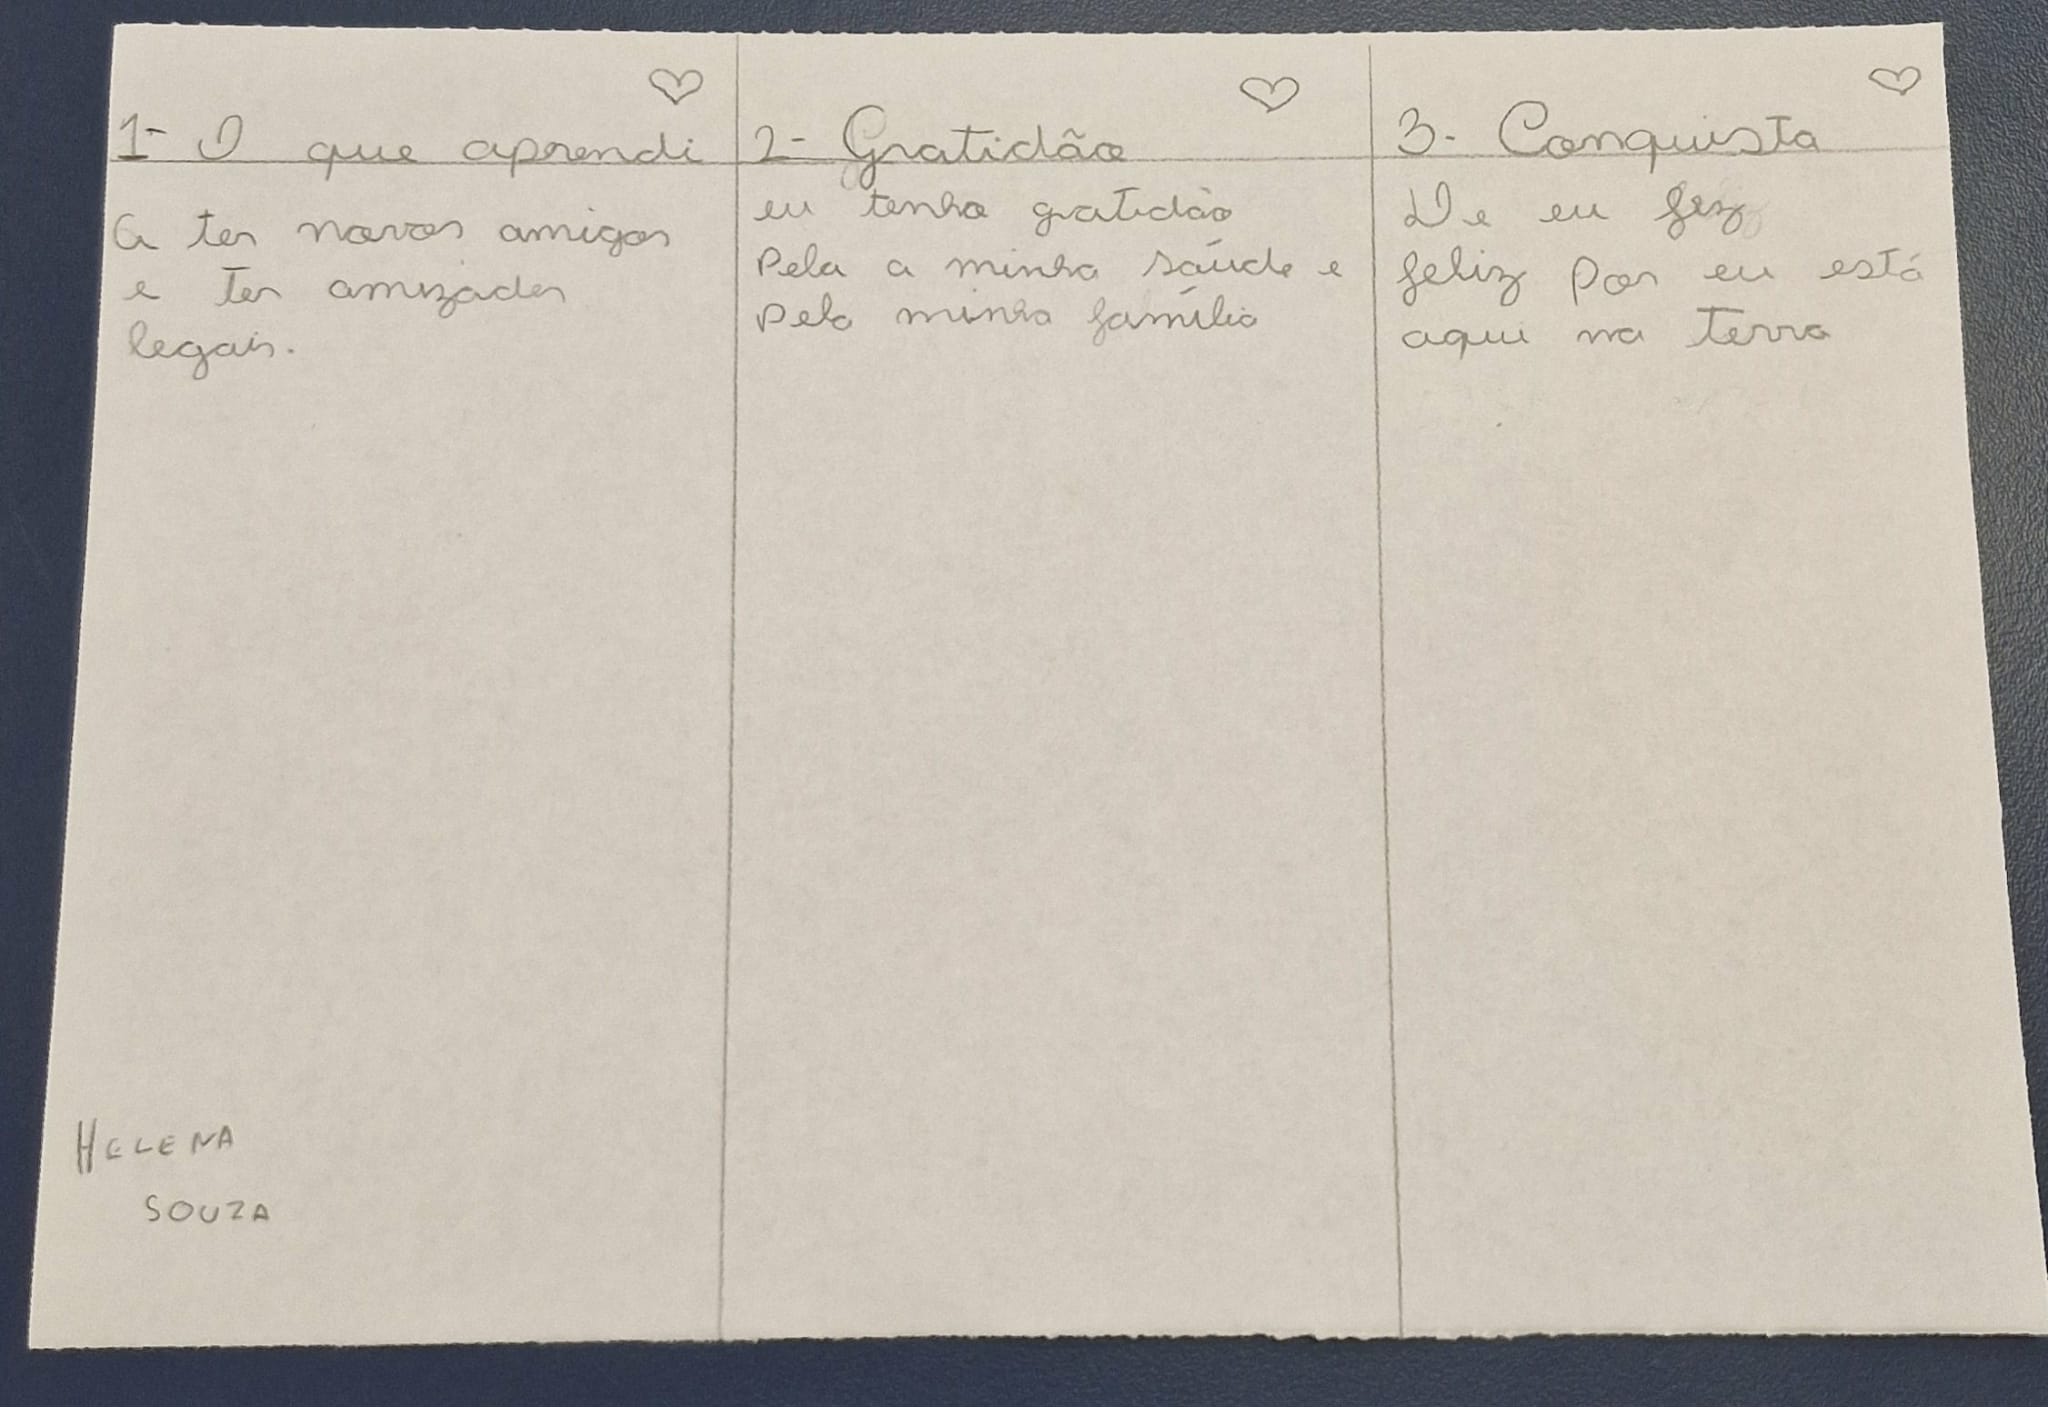 1- O que aprendi
a ter novos amigos
e ter amizades
legais.
HELENA
SOUZA
2- Gratidão
eu tenho gratidão
Pela a minha saúde e
Pela minha família
3- Conquista
De eu fez
feliz Por eu está
aqui na terra